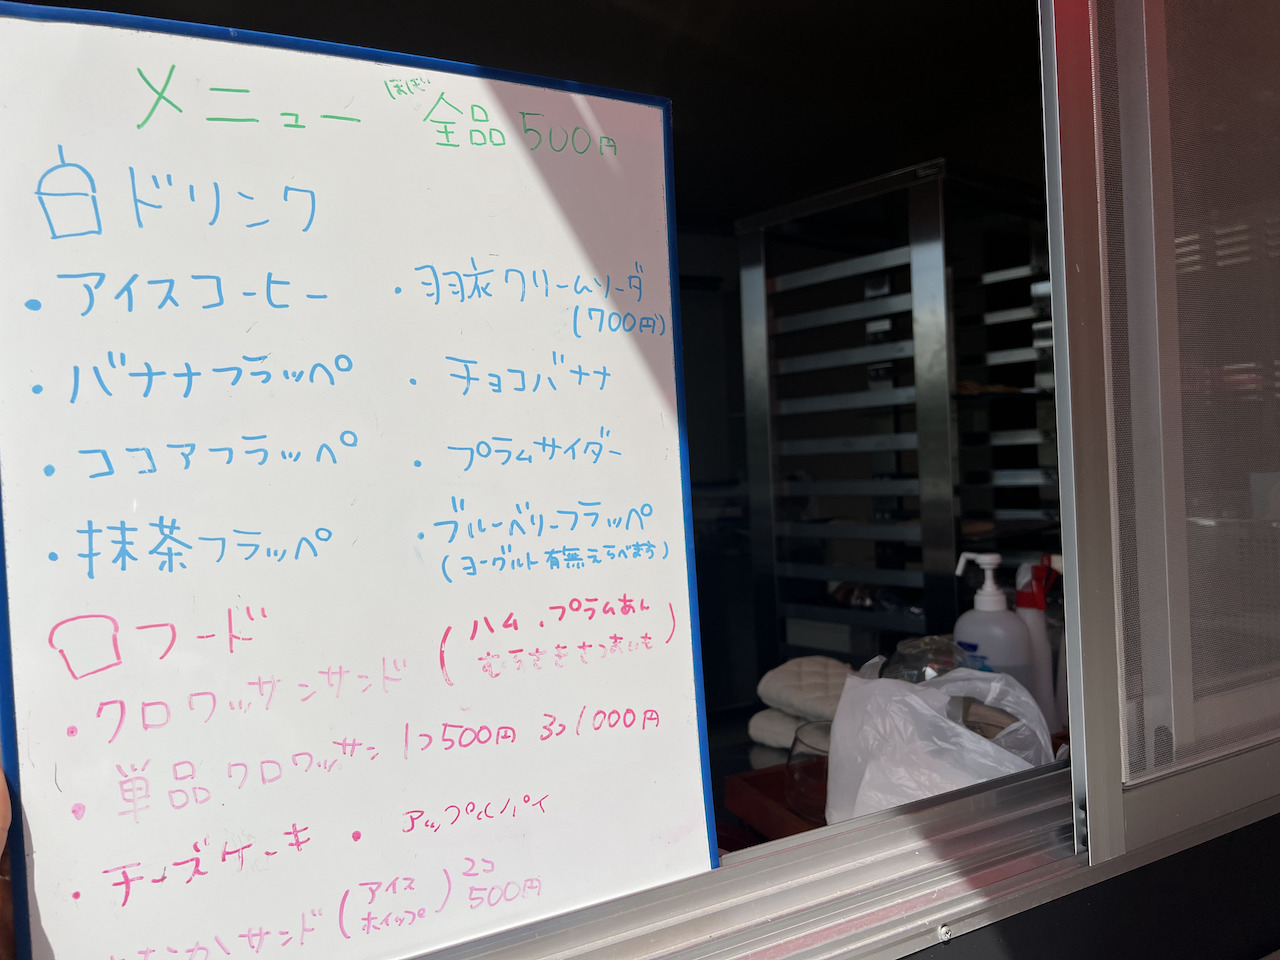 メニュー ほぼ 全品500円
ドリンク
・アイスコーヒー
・バナナフラッペ
・ココアフラッペ
・抹茶フラッペ
・羽衣クリームソーダ
(700円)
・チョコバナナ
・プラムサイダー
・ブルーベリーフラッペ
(ヨーグルト有無えらべます)
フード
・クロワッサンサンド (ハム、プラムあん
むらさきさつまいも)
・単品クロワッサン 1コ500円 3コ1000円
・チーズケーキ ・アップルパイ
サンド (アイス ホイップ) 2コ 500円